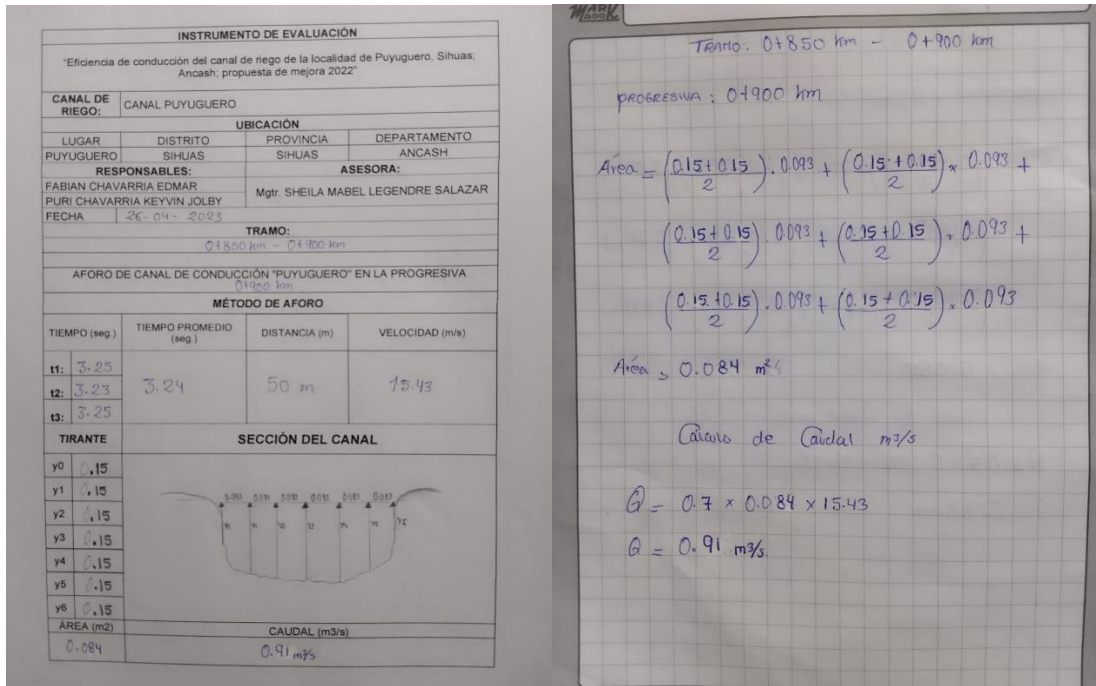 INSTRUMENTO DE EVALUACIÓN
"Eficiencia de conducción del canal de riego de la localidad de Puyuguero, Sihuas;
Ancash; propuesta de mejora 2022"
CANAL DE RIEGO: CANAL PUYUGUERO
UBICACIÓN
LUGAR DISTRITO PROVINCIA DEPARTAMENTO
PUYUGUERO SIHUAS SIHUAS ANCASH
RESPONSABLES: ASESORA:
FABIAN CHAVARRIA EDMAR
PURI CHAVARRIA KEYVIN JOLBY
Mgtr. SHEILA MABEL LEGENDRE SALAZAR
FECHA 26-04-2023
TRAMO:
0+850 km - 0+900 km
AFORO DE CANAL DE CONDUCCIÓN "PUYUGUERO" EN LA PROGRESIVA
0+900 km
MÉTODO DE AFORO
TIEMPO (seg.) TIEMPO PROMEDIO (seg.) DISTANCIA (m) VELOCIDAD (m/s)
t1: 3.25
t2: 3.23 3.24 50 m 15.43
t3: 3.25
TIRANTE SECCIÓN DEL CANAL
y0 0.15
y1 0.15
y2 0.15
y3 0.15
y4 0.15
y5 0.15
y6 0.15
0.093 0.093 0.093 0.093 0.093 0.093
y0 y1 y2 y3 y4 y5 y6
ÁREA (m2) CAUDAL (m3/s)
0.084 0.91 m3/s
TRAMO: 0+850 km - 0+900 km
PROGRESIVA : 0+900 km
Área = (0.15+0.15 / 2) . 0.093 + (0.15+0.15 / 2) x 0.093 +
(0.15+0.15 / 2) . 0.093 + (0.15+0.15 / 2) x 0.093 +
(0.15+0.15 / 2) . 0.093 + (0.15+0.15 / 2) x 0.093
Área = 0.084 m2
Cálculo de Caudal m3/s
Q = 0.7 x 0.084 x 15.43
Q = 0.91 m3/s